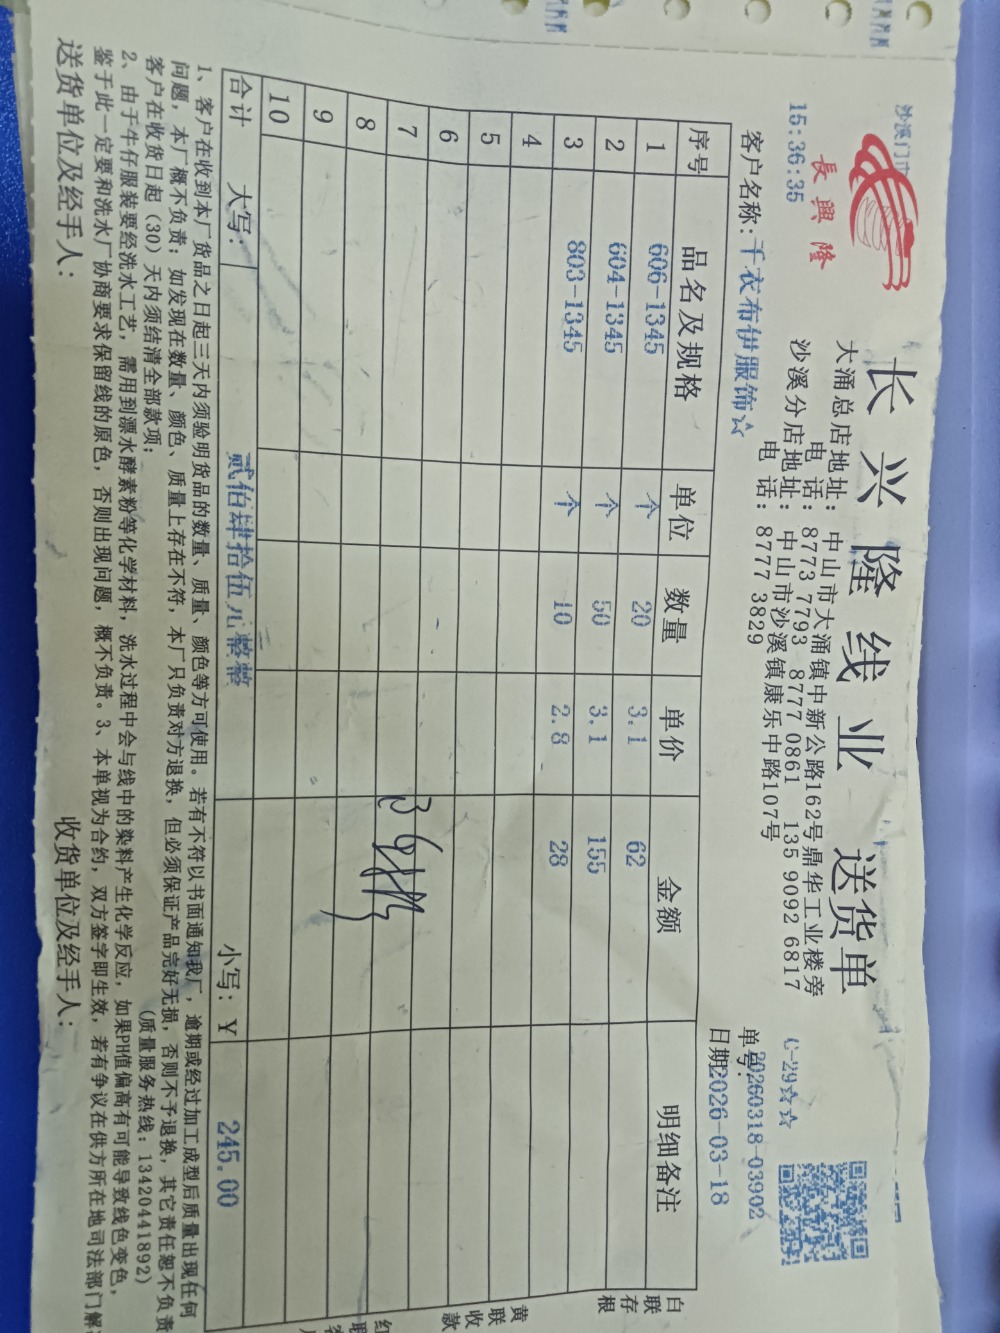 沙溪门市
15:36:35
長興隆
长兴隆线业 送货单
大涌总店地址：中山市大涌镇中新公路162号鼎华工业楼旁
电 话：8773 7793 8777 0861 135 9092 6817
沙溪分店地址：中山市沙溪镇康乐中路107号
电 话：8777 3829
C-29☆☆
单号：20260318-03902
客户名称：千衣布伊服饰☆
日期2026-03-18
序号 品名及规格 单位 数量 单价 金额 明细备注
1 606-1345 个 20 3.1 62
2 604-1345 个 50 3.1 155
3 803-1345 个 10 2.8 28
4
5
6
7
8
9
10
合计 大写： 贰佰肆拾伍元整整 小写：￥ 245.00
白联存根
黄联收款
1、客户在收到本厂货品之日起三天内须验明货品的数量、质量、颜色等方可使用。若有不符以书面通知我厂，逾期或经过加工成型后质量出现任何
问题，本厂概不负责；如发现在数量、颜色、质量上存在不符，本厂只负责对方退换，但必须保证产品完好无损，否则不予退换，其它责任恕不负责
客户在收货日起（30）天内须结清全部款项； （质量服务热线：13420441892）
2、由于牛仔服装要经洗水工艺，需用到漂水酵素粉等化学材料，洗水过程中会与线中的染料产生化学反应，如果PH值偏高有可能导致线色变色，
鉴于此一定要和洗水厂协商要求保留线的原色，否则出现问题，概不负责。3、本单视为合约，双方签字即生效，若有争议在供方所在地司法部门解
送货单位及经手人： 收货单位及经手人：